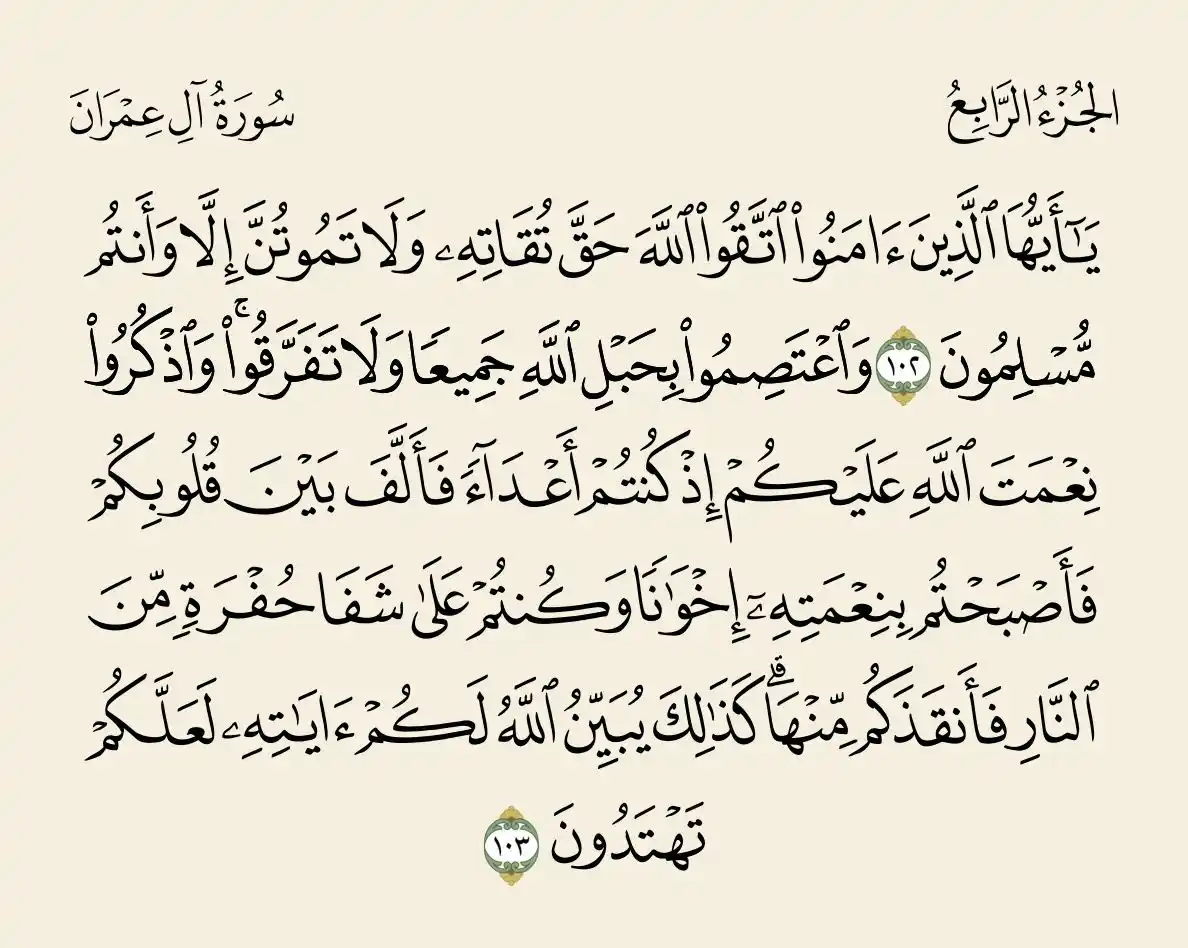 الجُزْءُ الرَّابِعُ
سُورَةُ آلِ عِمْرَانَ
يَـٰٓأَيُّهَا ٱلَّذِينَ ءَامَنُوا۟ ٱتَّقُوا۟ ٱللَّهَ حَقَّ تُقَاتِهِۦ وَلَا تَمُوتُنَّ إِلَّا وَأَنتُم
مُّسْلِمُونَ ١٠٢ وَٱعْتَصِمُوا۟ بِحَبْلِ ٱللَّهِ جَمِيعًا وَلَا تَفَرَّقُوا۟ ۚ وَٱذْكُرُوا۟
نِعْمَتَ ٱللَّهِ عَلَيْكُمْ إِذْ كُنتُمْ أَعْدَآءً فَأَلَّفَ بَيْنَ قُلُوبِكُمْ
فَأَصْبَحْتُم بِنِعْمَتِهِۦٓ إِخْوَٰنًا وَكُنتُمْ عَلَىٰ شَفَا حُفْرَةٍ مِّنَ
ٱلنَّارِ فَأَنقَذَكُم مِّنْهَا ۗ كَذَٰلِكَ يُبَيِّنُ ٱللَّهُ لَكُمْ ءَايَـٰتِهِۦ لَعَلَّكُمْ
تَهْتَدُونَ ١٠٣